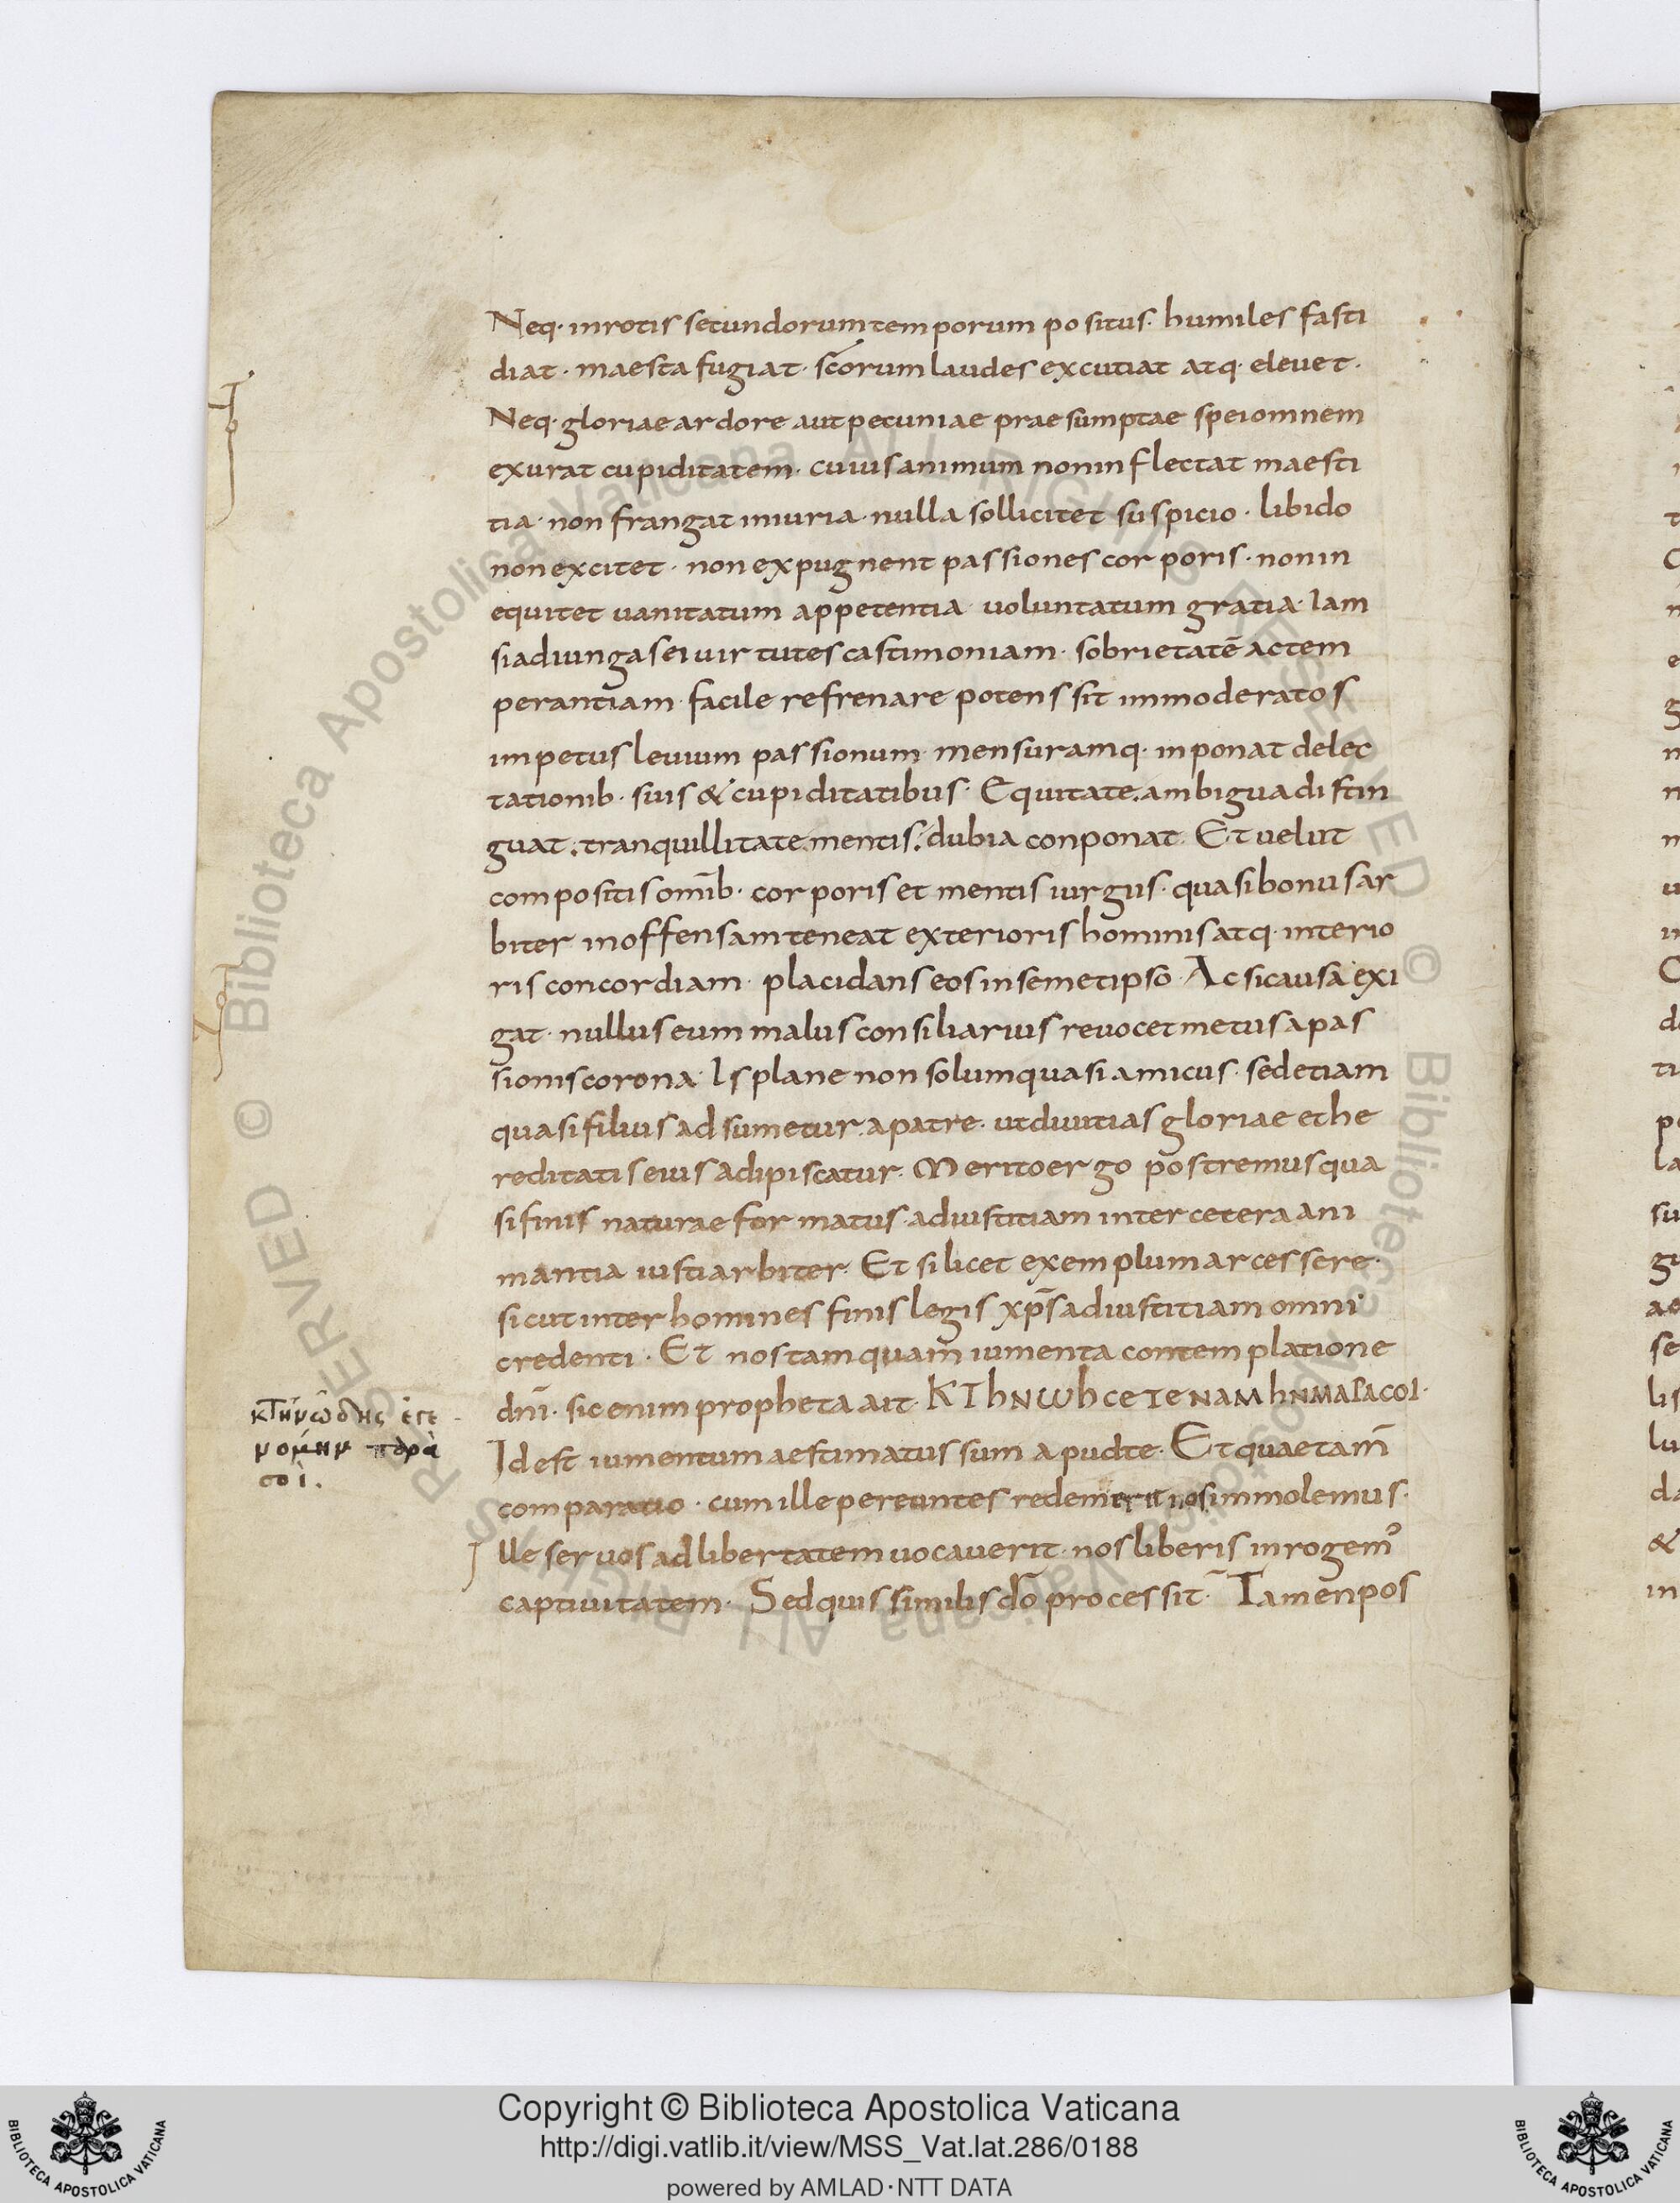 Neq· inrotis secundorum temporum positus· humiles fasti
diat· maesta fugiat· sc̄orum laudes excutiat atq· eleuet·
Neq· gloriae ardore aut pecuniae praesumptae spei omnem
exurat cupiditatem· cuius animum non inflectat maesti
tia· non frangat iniuria· nulla sollicitet suspicio· libido
non excitet· non expugnent passiones corporis· non in
equitet uanitatum appetentia uoluntatum gratia· Iam
si adiungas ei uirtutes castimoniam· sobrietatē ac tem
perantiam· facile refrenare potens sit immoderatos
impetus leuium passionum· mensuramq· inponat delec
tationib· suis & cupiditatibus· Equitate. ambigua distin
guat. tranquillitate mentis. dubia conponat· Et uelut
compositis omīb· corporis et mentis iurgus· quasi bonus ar
biter inoffensam teneat exterioris hominis atq· interio
ris concordiam· placidans eos in semetipso· Ac si causa exi
gat· nullus eum malus consiliarius reuocet metus a pas
sionis corona· Is plane non solum quasi amicus· sed etiam
quasi filius adsumetur. a patre· ut diuitias gloriae et he
reditatis eius adipiscatur· Merito ergo postremus qua
si finis naturae formatus· ad iustitiam inter cetera ani
mantia iusti arbiter· Et si licet exemplum arcessere·
sicut inter homines finis legis xp̄s ad iustitiam omni
credenti· Et nos tamquam iumenta contemplatione
dn̄i· sic enim propheta ait· ΚΤhΝωhCΕΓΕΝΑΜhΝΜΑΓΑCΟΙ·
Id est iumentum aestimatus sum apud te· Et quae tam̄
comparatio· cum ille pereuntes redemerit nos immolemus·
Ille seruos ad libertatem uocauerit· nos liberis inrogem᾽
captiuitatem· Sed quis similis dō processit· Tamen pos
κτηνώδης ἐγε
νομήην παρὰ
σοὶ.
© Biblioteca Apostolica Vaticana ALL RIGHTS RESERVED © Biblioteca Apostolica Vaticana ALL RIGHTS RESERVED
Copyright © Biblioteca Apostolica Vaticana
http://digi.vatlib.it/view/MSS_Vat.lat.286/0188
powered by AMLAD·NTT DATA
BIBLIOTECA APOSTOLICA VATICANA
BIBLIOTECA APOSTOLICA VATICANA